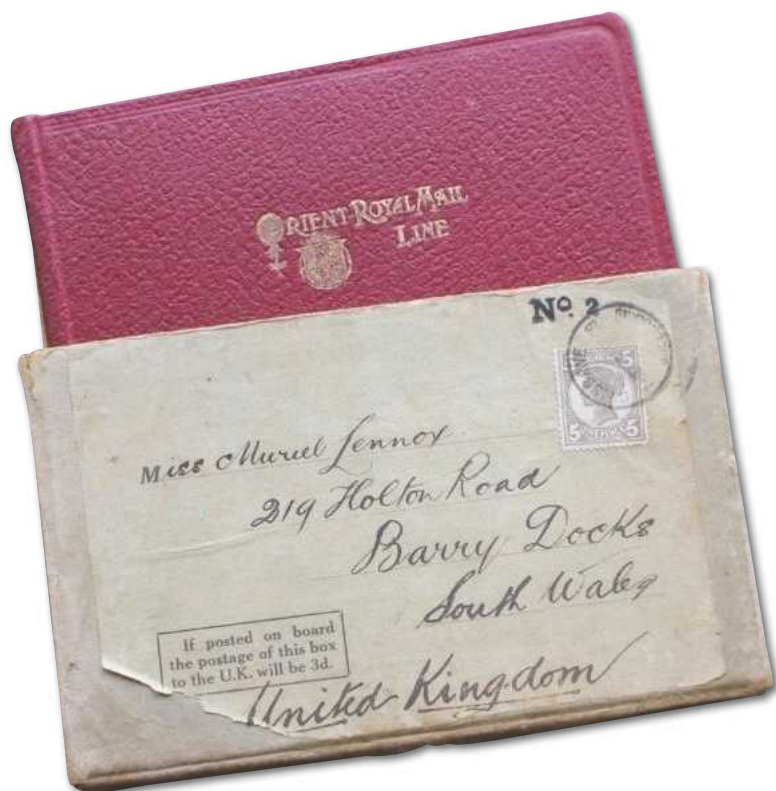 ORIENT ROYAL MAIL
LINE
No. 2
5 5
Miss Muriel Lennox
219 Holton Road
Barry Docks
South Wales
If posted on board
the postage of this box
to the U.K. will be 3d.
United Kingdom